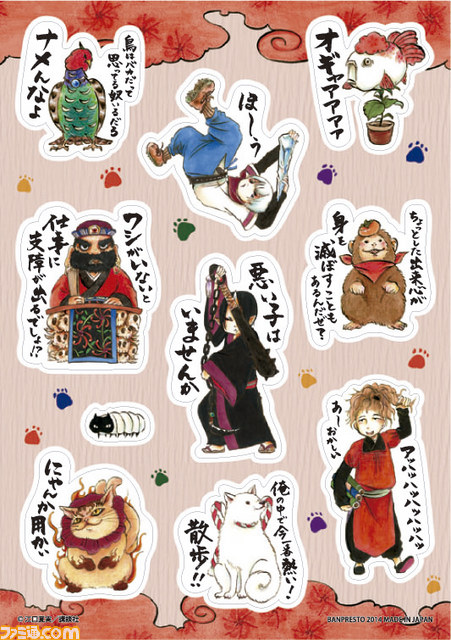 鳥はバカだって
思ってる奴いるだろ
ナメんなよ
ほーう
オギャアアアア
ワシがいないと
仕事に
支障が出るでしょ!?
悪い子は
いませんか
ちょっとした出来心が
身を
滅ぼすことも
あるんだぜ?
アハッハッハッハッハッ
あーおかしい
にゃんか用かい
俺の中で今一番熱い!
散歩!!
©江口夏実/講談社
BANPRESTO 2014 MADE IN JAPAN
ファミ通.com